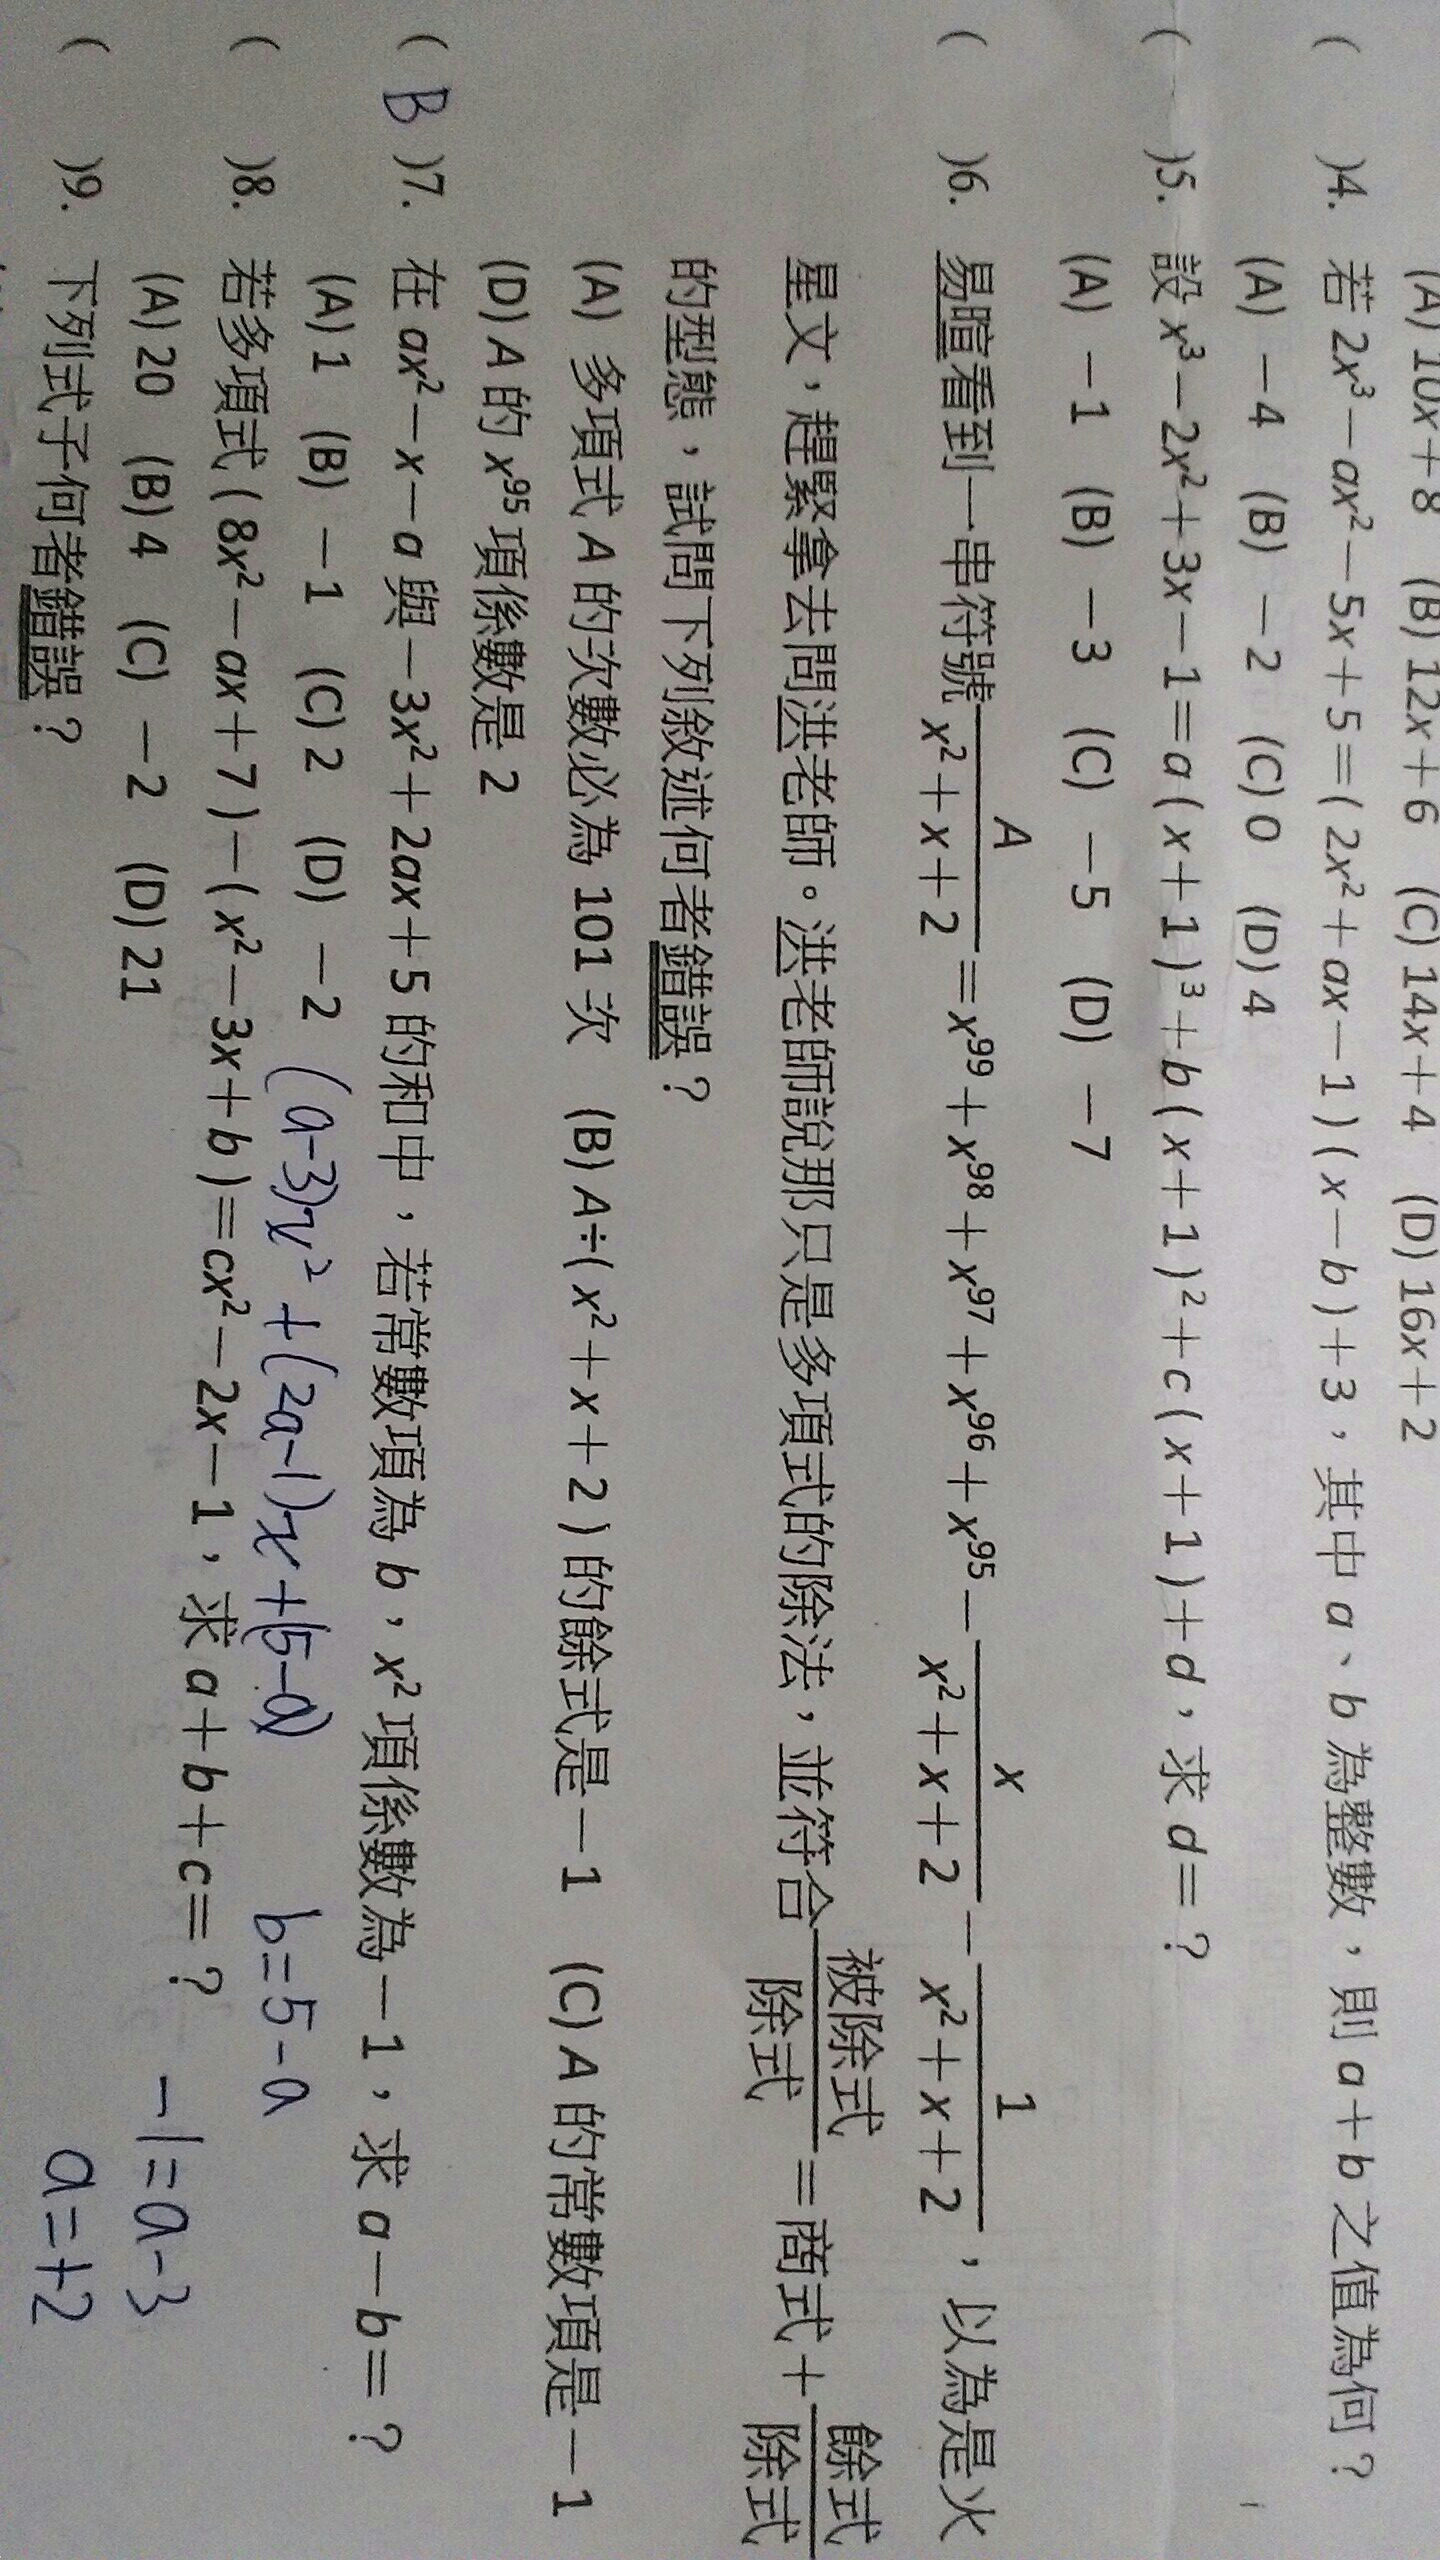 (A) 10x+8 (B) 12x+6 (C) 14x+4 (D) 16x+2
( )4. 若 2x³-ax²-5x+5=(2x²+ax-1)(x-b)+3,其中 a、b 為整數,則 a+b 之值為何?
(A) -4 (B) -2 (C) 0 (D) 4
( )5. 設 x³-2x²+3x-1=a(x+1)³+b(x+1)²+c(x+1)+d,求 d=?
(A) -1 (B) -3 (C) -5 (D) -7
( )6. 易暄看到一串符號 A/(x²+x+2) = x⁹⁹+x⁹⁸+x⁹⁷+x⁹⁶+x⁹⁵ - x/(x²+x+2) - 1/(x²+x+2),以為是火
星文,趕緊拿去問洪老師。洪老師說那只是多項式的除法,並符合 被除式/除式 = 商式 + 餘式/除式
的型態,試問下列敘述何者錯誤?
(A) 多項式 A 的次數必為 101 次 (B) A÷(x²+x+2) 的餘式是 -1 (C) A 的常數項是 -1
(D) A 的 x⁹⁵ 項係數是 2
( B )7. 在 ax²-x-a 與 -3x²+2ax+5 的和中,若常數項為 b,x² 項係數為 -1,求 a-b=?
(A) 1 (B) -1 (C) 2 (D) -2 (a-3)x²+(2a-1)x+(5-a) b=5-a
( )8. 若多項式 (8x²-ax+7)-(x²-3x+b)=cx²-2x-1,求 a+b+c=?
(A) 20 (B) 4 (C) -2 (D) 21 -1=a-3
( )9. 下列式子何者錯誤? a=+2